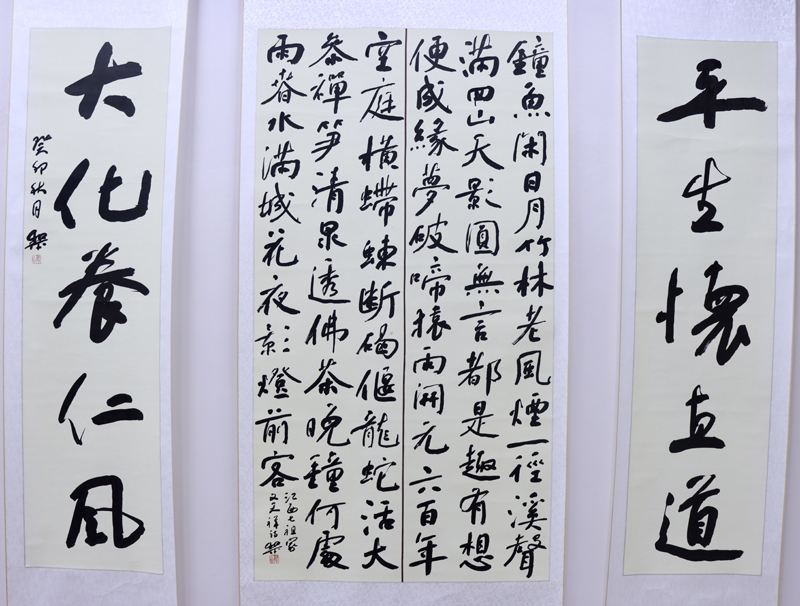 平生懷直道
鐘魚閑日月竹林老風煙一徑溪聲
滿四山天影圓無言都是趣有想
便成緣夢破啼猿雨開元六百年
空庭橫螮蝀斷碣偃龍蛇活大
參禪筍清泉透佛茶晚鐘何處
雨春水滿城花夜影燈前客
江西七祖家
文天祥詩
大化養仁風
癸卯秋月